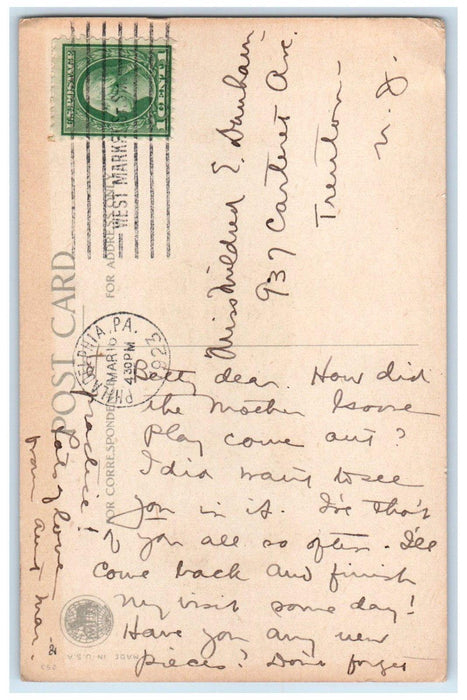 U.S. POSTAGE
1 CENT 1
WEST MARK
PHILADELPHIA, PA.
MAR 16
4 30 PM
1923
POST CARD
FOR ADDRESS ONLY
FOR CORRESPONDENCE
Miss Mildred E. Dunham
937 Carteret Ave.
Trenton -
N. J.
Betty dear. How did
the Mother Goose
play come out?
I did want to see
you in it. I've tho't
of you all so often. I'll
come back and finish
my visit some day!
Have you any new
pieces? Don't forget
practice!
Lots of love
from Aunt Mar.
MADE IN U.S.A.
253